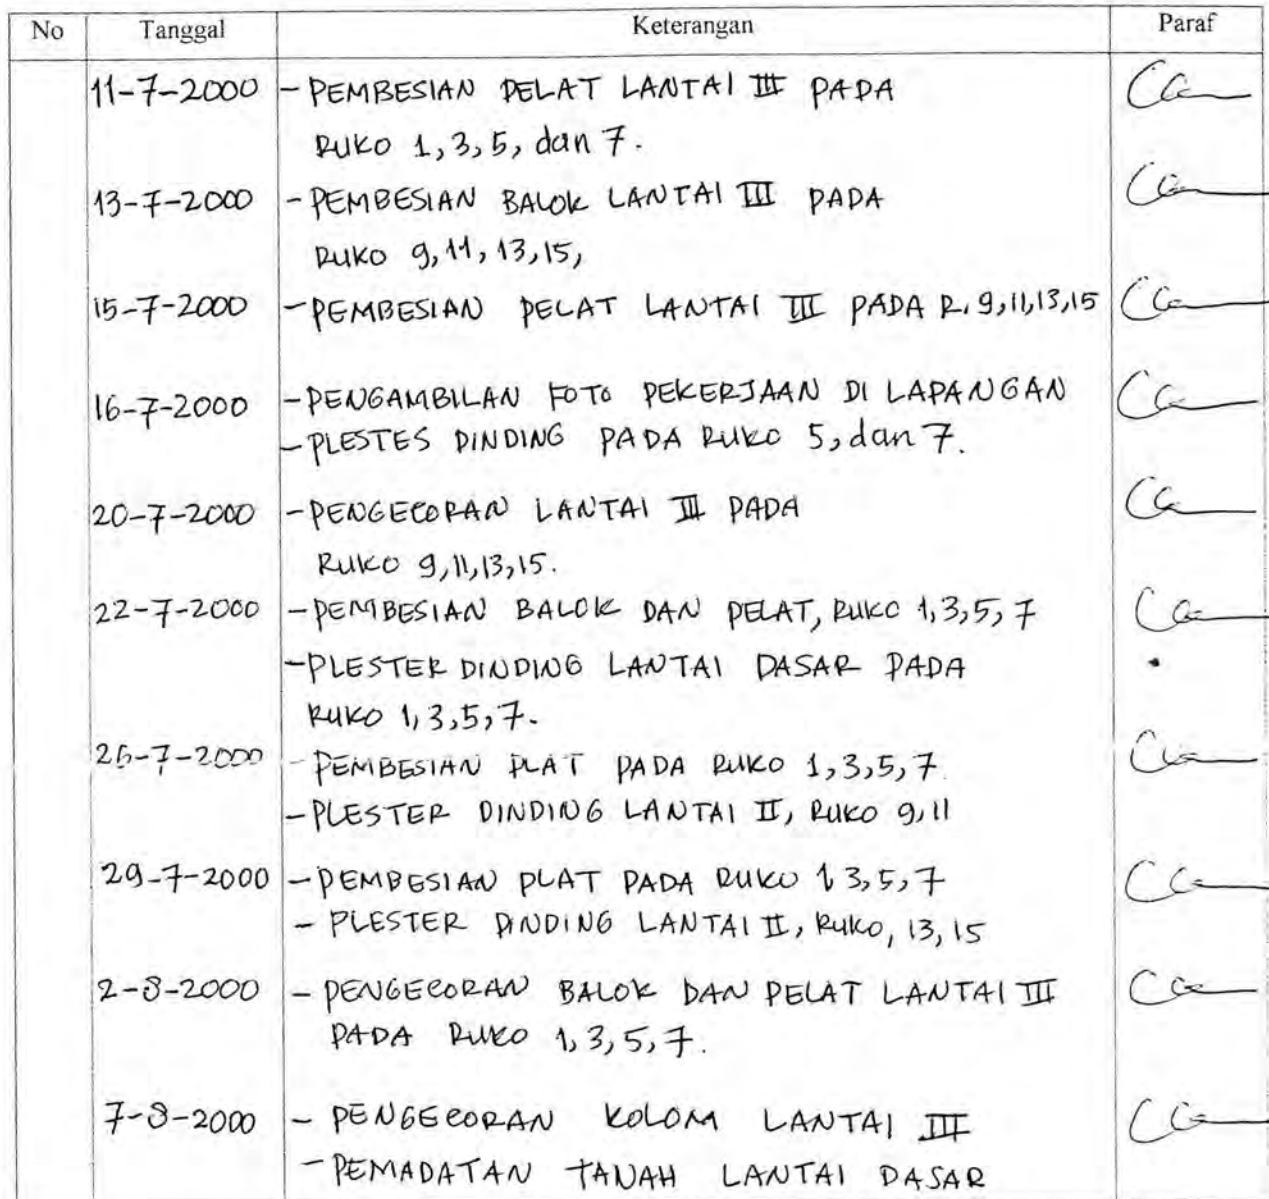 No Tanggal Keterangan Paraf
11-7-2000 - PEMBESIAN PELAT LANTAI III PADA
RUKO 1, 3, 5, dan 7.
13-7-2000 - PEMBESIAN BALOK LANTAI III PADA
RUKO 9, 11, 13, 15,
15-7-2000 - PEMBESIAN PELAT LANTAI III PADA R. 9, 11, 13, 15
16-7-2000 - PENGAMBILAN FOTO PEKERJAAN DI LAPANGAN
- PLESTES DINDING PADA RUKO 5, dan 7.
20-7-2000 - PENGECORAN LANTAI III PADA
RUKO 9, 11, 13, 15.
22-7-2000 - PEMBESIAN BALOK DAN PELAT, RUKO 1, 3, 5, 7
- PLESTER DINDING LANTAI DASAR PADA
RUKO 1, 3, 5, 7.
26-7-2000 - PEMBESIAN PLAT PADA RUKO 1, 3, 5, 7
- PLESTER DINDING LANTAI II, RUKO 9, 11
29-7-2000 - PEMBESIAN PLAT PADA RUKO 1 3, 5, 7
- PLESTER DINDING LANTAI II, RUKO, 13, 15
2-8-2000 - PENGECORAN BALOK DAN PELAT LANTAI III
PADA RUKO 1, 3, 5, 7.
7-8-2000 - PENGECORAN KOLOM LANTAI III
- PEMADATAN TANAH LANTAI DASAR